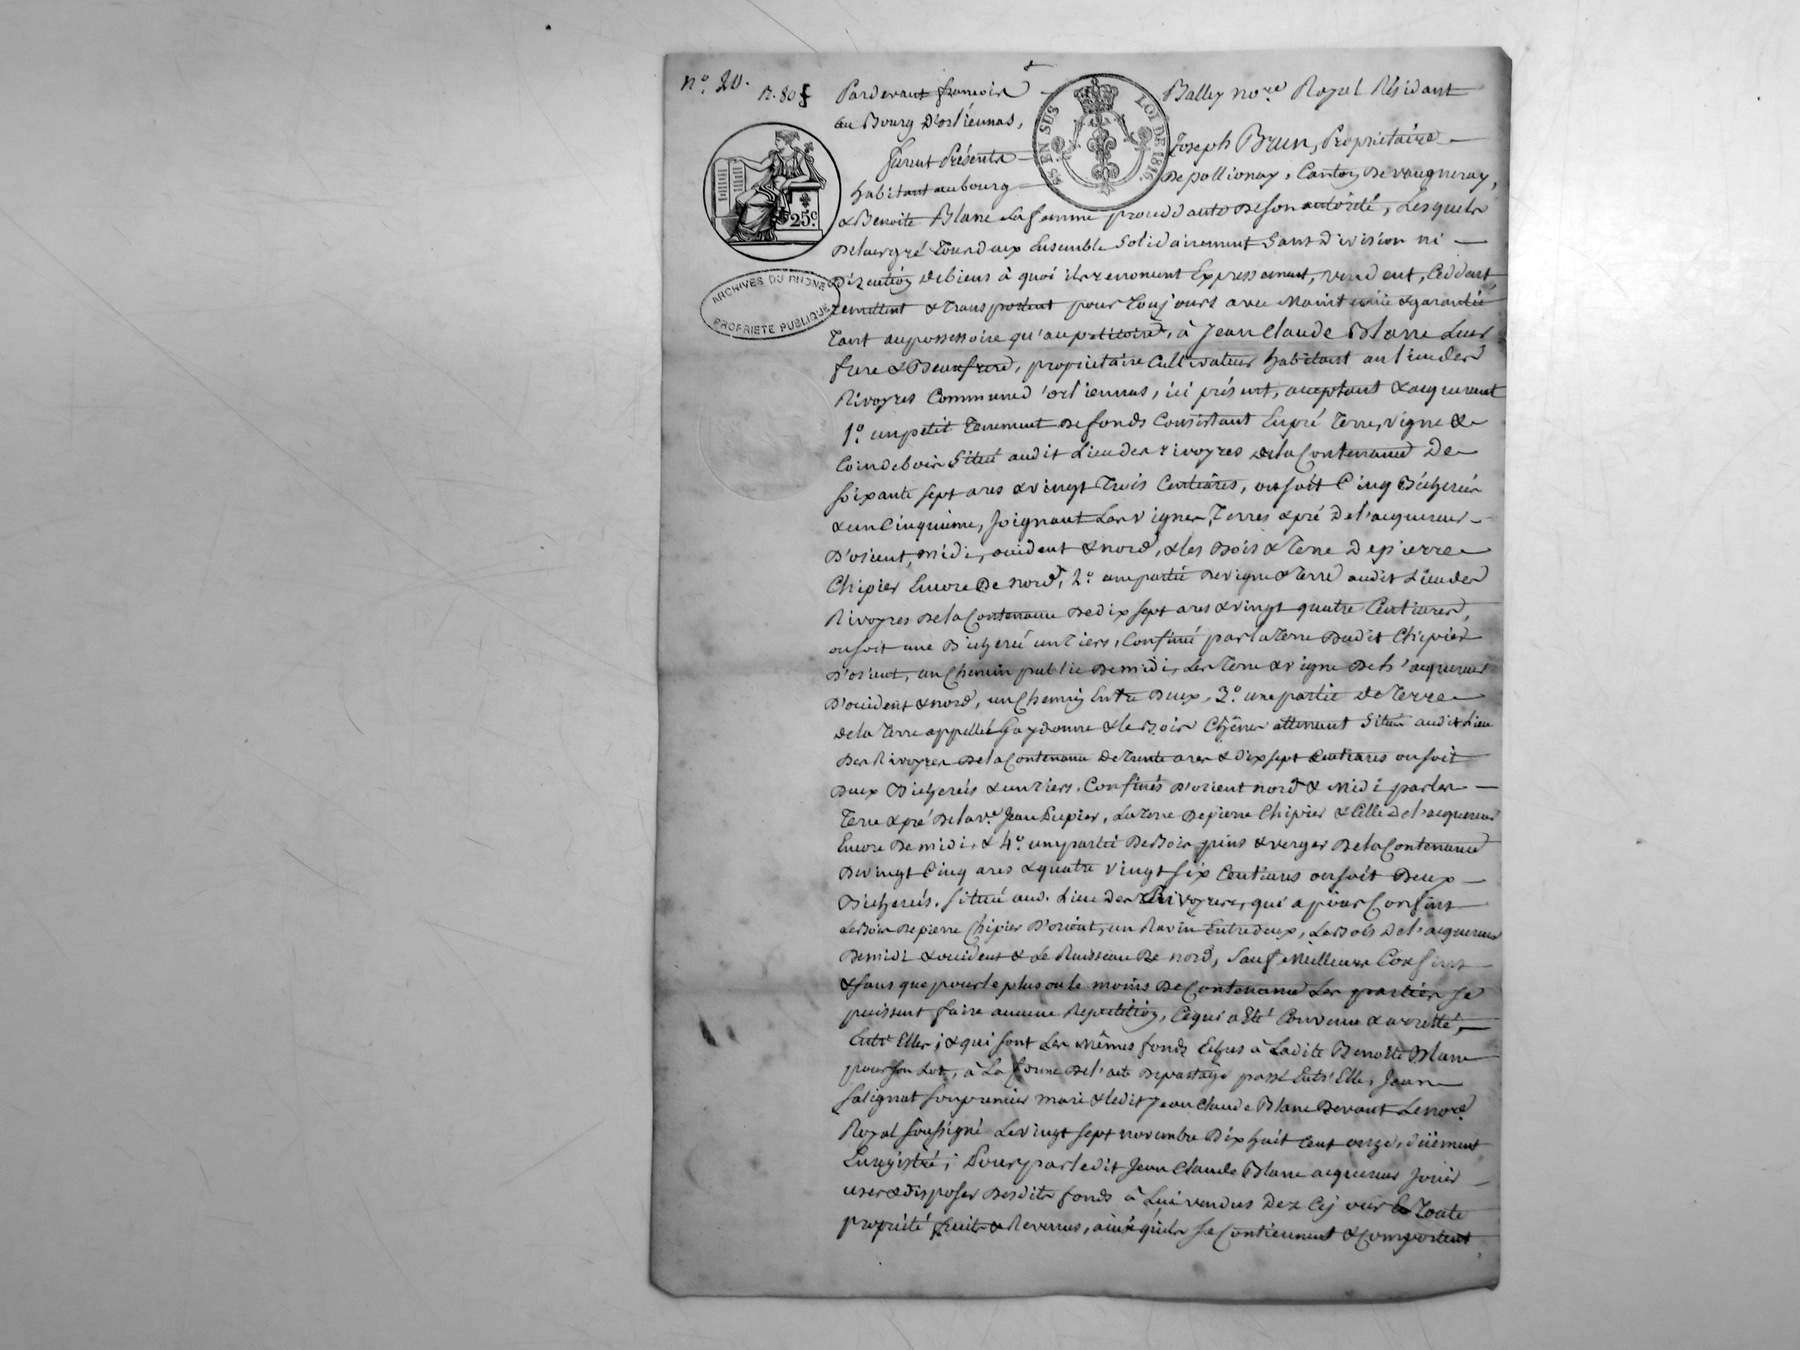 n.° 20.
R. 80 f
Pardevant françois Balley no.re Royal Résidant
au Bourg D'orliennas,
furent Présents Joseph Brun, Propriétaire
habitant au bourg De pollionay, Canton De vaugneray,
& Benoite Blanc sa femme procédante De son autorité, Lesquels
De leur gré Tous deux Ensemble Solidairement Sans Division ni
Discution De biens à quoi ils renoncent Expressement, vendent, Cèddent,
remettent & transportent pour toujours avec Maintenüe & garantie
tant au possessoire qu'au petitoire, à Jean Claude Blanc Leur
frere & Beaufrere, propriétaire Cultivateur habitant au lieu des
Rivoyres Commune d'orliennas, ici présent, acceptant & acquerant
1.° un petit Tenement De fonds Consistant En pré Terre, vigne &
Coin de bois Situé audit Lieu des rivoyres de la Contenance De
soixante sept ares & vingt Trois Centiares, ou soit Cinq Bicherées
& un Cinquieme, Joignant Les vignes, Terres & pré De l'acquereur
D'orient, midi, occident & nord, & les Bois & Terre De pierre
Chipier Encore De nord, 2.° une partie De vigne & Terre audit Lieu des
Rivoyres De la Contenance De dix sept ares & vingt quatre Centiares,
ou soit une Bicherée un Tiers, Confinée par la terre Dudit Chipier
D'orient, un Chemin public De midi, Les Terre & vigne De l'acquereur
D'occident & nord, un Chemin Entre Deux, 3.° une partie De Terre
de la Terre appellée Gaydonne & le Bois Chênes attenant Situés audit Lieu
Des Rivoyres De la Contenance De Trente ares & Dix sept Centiares ou soit
Deux Bicherées & un Tiers, Confinés D'orient nord & Midi par les
Terre & pré De la v.e Jean Dupier, La terre De pierre Chipier & Celle De l'acquereur
Encore De midi, & 4.° une partie De Bois pins & verger De la Contenance
De vingt Cinq ares & quatre vingt six Centiares ou soit Deux
Bicherées, situé aud. Lieu des Rivoyres, qui a pour Confins
Le Bois De pierre Chipier D'orient, un Ravin Entredeux, Le Bois De l'acquereur
De midi & occident & Le Ruisseau De nord, Sauf Meilleurs Confins
& sans que pour le plus ou le moins De Contenance Les parties se
puissent faire aucune Répétition, Ce qui a Eté Convenu & arretté,
Entr'Elles; & qui sont Les Mêmes fonds Echus à Ladite Benoite Blanc
pour son Lot, à La forme De l'acte De partage passé Entr'Elle, Jean
Salignat son premier mari & ledit Jean Claude Blanc Devant Le no.re
Royal soussigné Le vingt sept novembre Dix huit Cent onze, düement
Enregistré; Pour par ledit Jean Claude Blanc acquereur Jouir
user & disposer Desdits fonds à Lui vendus Dez Cej our En Toute
propriété fruits & Revenus, ainsi qu'ils se Contiennent & Comportent
25.c
ES EN SUS
LOI DE 1816.
ARCHIVES DU RHÔNE
PROPRIÉTÉ PUBLIQUE